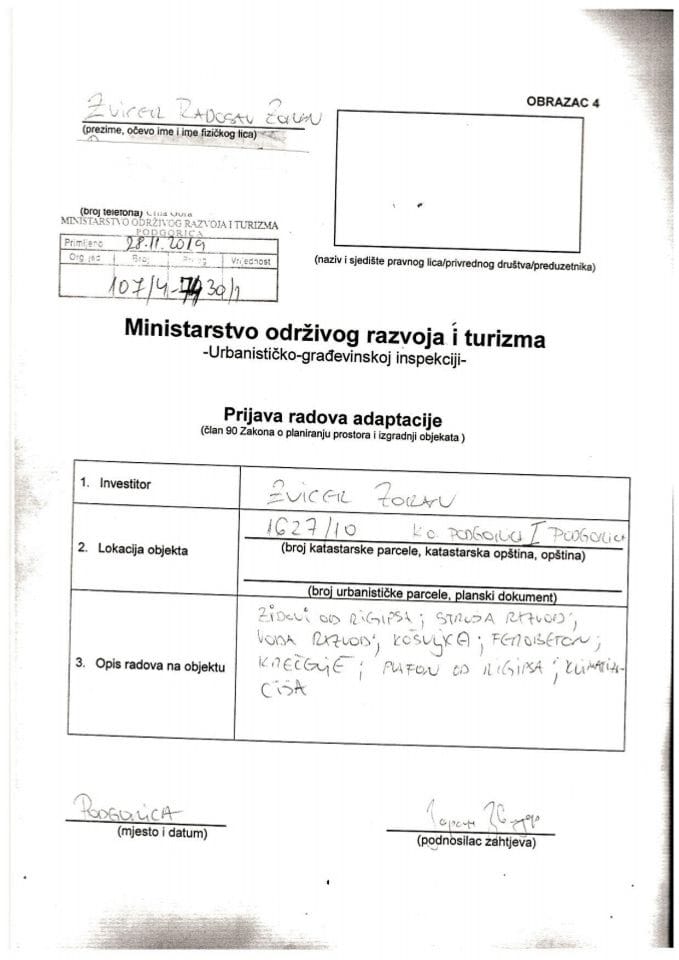 OBRAZAC 4
Zvicer Radosav Zoran
(prezime, očevo ime i ime fizičkog lica)
(broj telefona) Crna Gora
MINISTARSTVO ODRŽIVOG RAZVOJA I TURIZMA
PODGORICA
Primljeno 28.11.2019
Org jed Broj Prilog Vrijednost
107/4-
(naziv i sjedište pravnog lica/privrednog društva/preduzetnika)
Ministarstvo održivog razvoja i turizma
-Urbanističko-građevinskoj inspekciji-
Prijava radova adaptacije
(član 90 Zakona o planiranju prostora i izgradnji objekata )
1. Investitor
ZVICER ZORAN
2. Lokacija objekta
1627/10 KO PODGORICA I PODGORICA
(broj katastarske parcele, katastarska opština, opština)
(broj urbanističke parcele, planski dokument)
3. Opis radova na objektu
ZIDOVI OD RIGIPSA; STRUJA RAZVOD;
VODA RAZVOD; KOŠULJICA; FEROBETON;
KREČENJE; PLAFON OD RIGIPSA; KLIMATIZA-
CIJA
PODGORICA
(mjesto i datum)
(podnosilac zahtjeva)